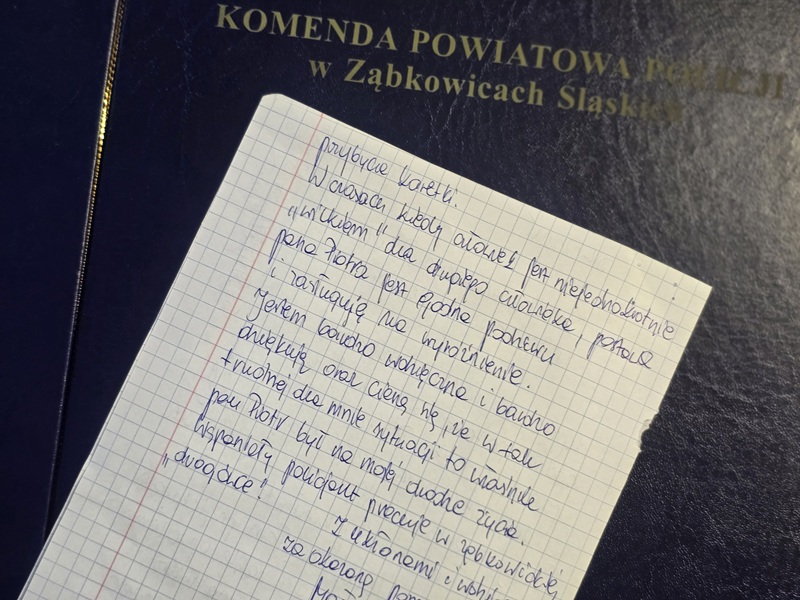 KOMENDA POWIATOWA POLICJI
w Ząbkowicach Śląskich
przybycia karetki.
W czasach kiedy człowiek jest niejednokrotnie
„wilkiem" dla drugiego człowieka, postawa
pana Piotra jest godna podziwu
i zasługuje na wyróżnienie.
Jestem bardzo wdzięczna i bardzo
dziękuję oraz cieszę się, że w tak
trudnej dla mnie sytuacji to właśnie
pan Piotr był na mojej drodze życia.
Wspaniały policjant pracuje w ząbkowickiej
„drogówce".
Z ukłonami i
za okazaną